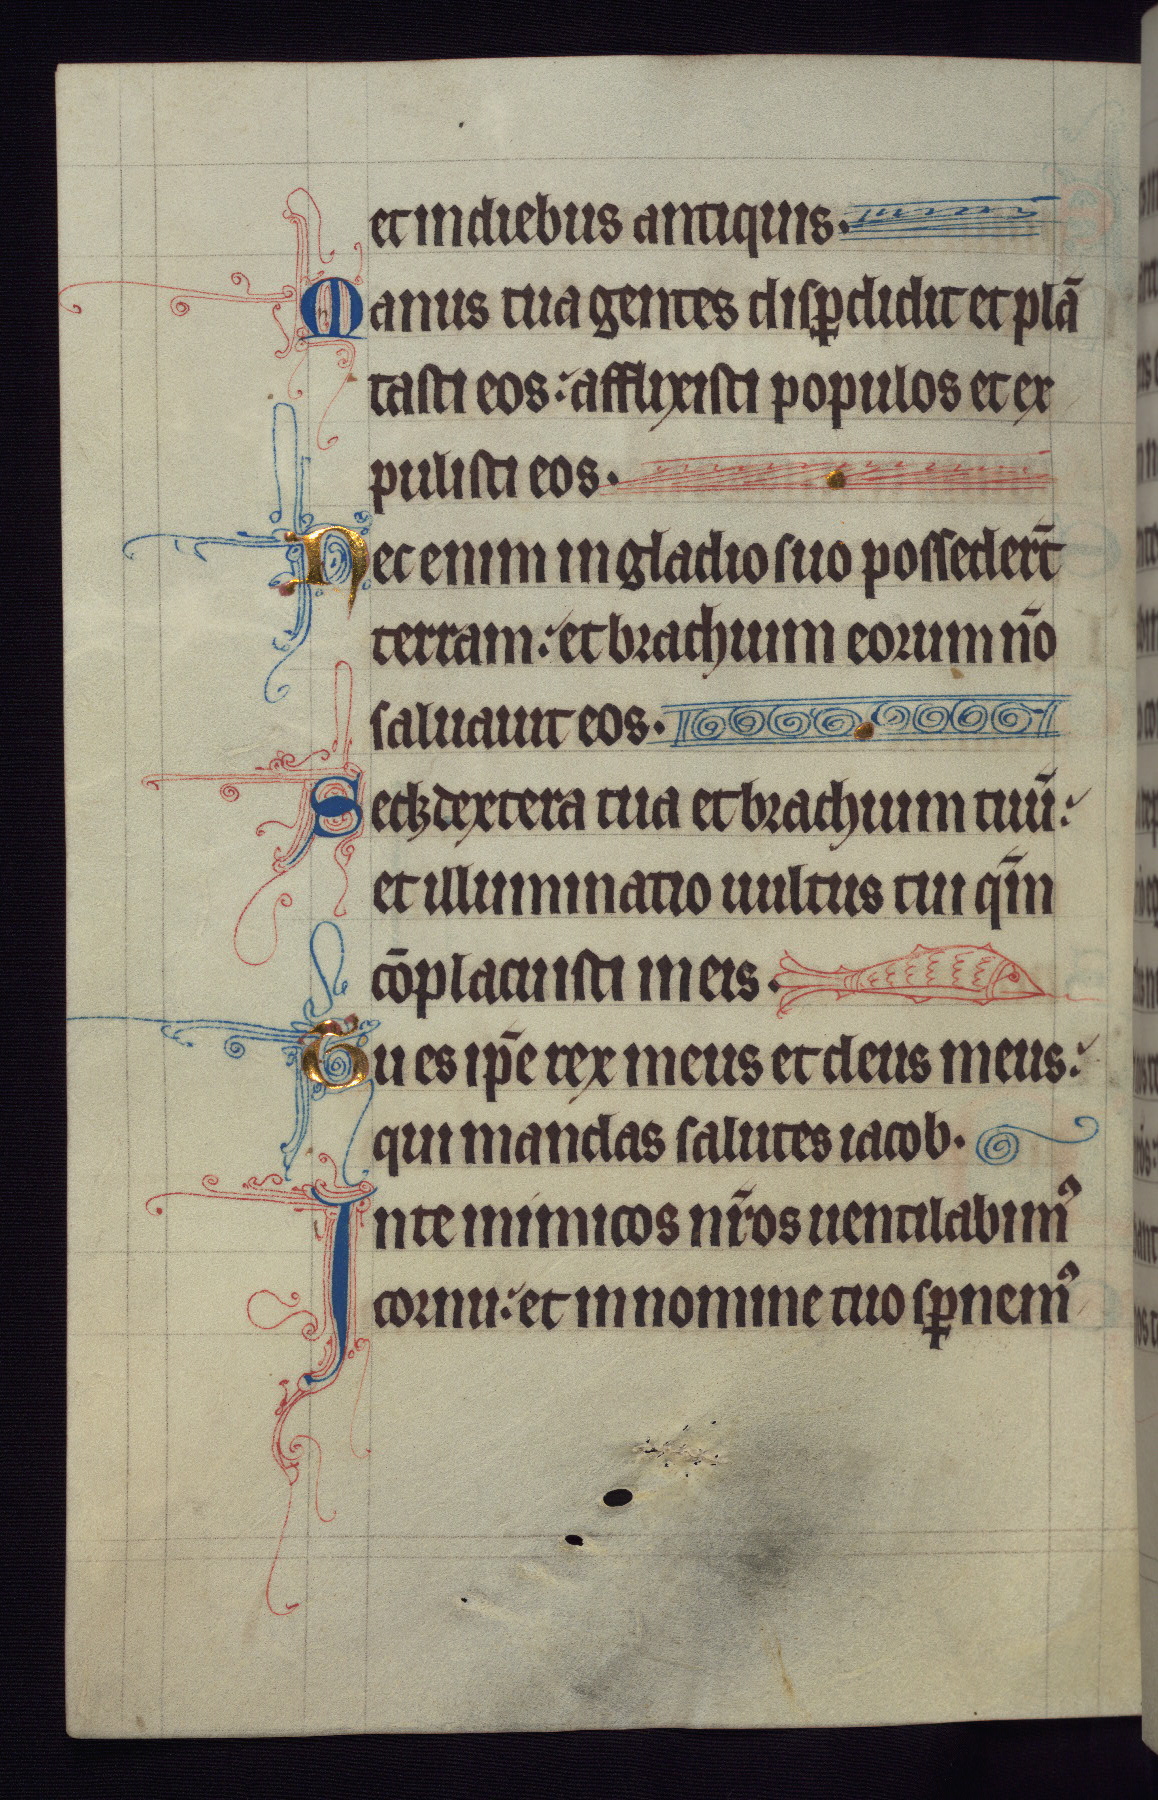 et in diebus antiquis.
Manus tua gentes disp̲didit et plā
tasti eos: afflixisti populos et ex
pulisti eos.
Nec enim in gladio suo possedert̄
terram: et brachium eorum nō
saluauit eos.
Sed ꝺextera tua et brachium tuū:
et illuminatio uultus tui qm̄
cōplacuisti in eis.
Tu es ip̄e rex meus et deus meus:
qui mandas salutes iacob.
In te inimicos nr̄os uentilabimꝰ
cornu: et in nomine tuo sꝑnemꝰ